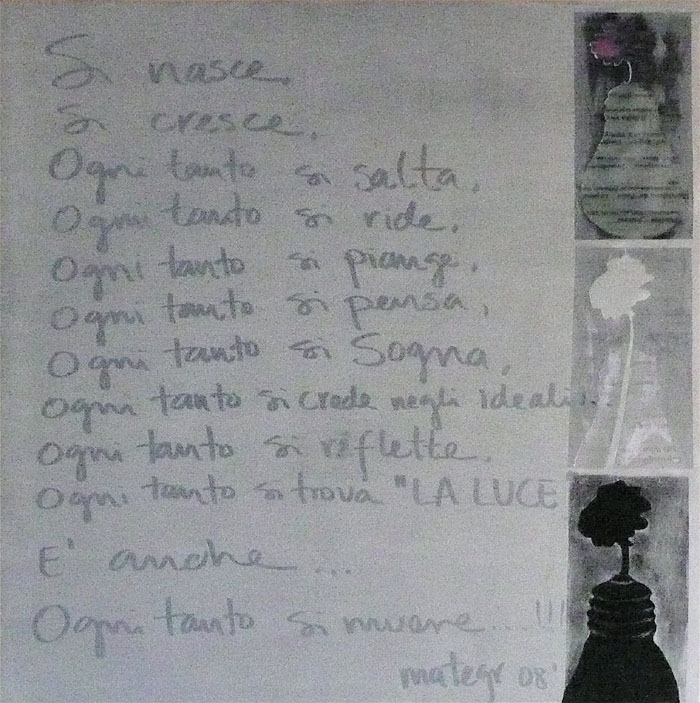 Si nasce,
Si cresce,
Ogni tanto si salta,
Ogni tanto si ride,
Ogni tanto si piange,
Ogni tanto si pensa,
Ogni tanto si Sogna,
Ogni tanto si crede negli ideali...
Ogni tanto si riflette,
Ogni tanto si trova "LA LUCE
E' anche ...
Ogni tanto si muore...!!!
mategr 08'